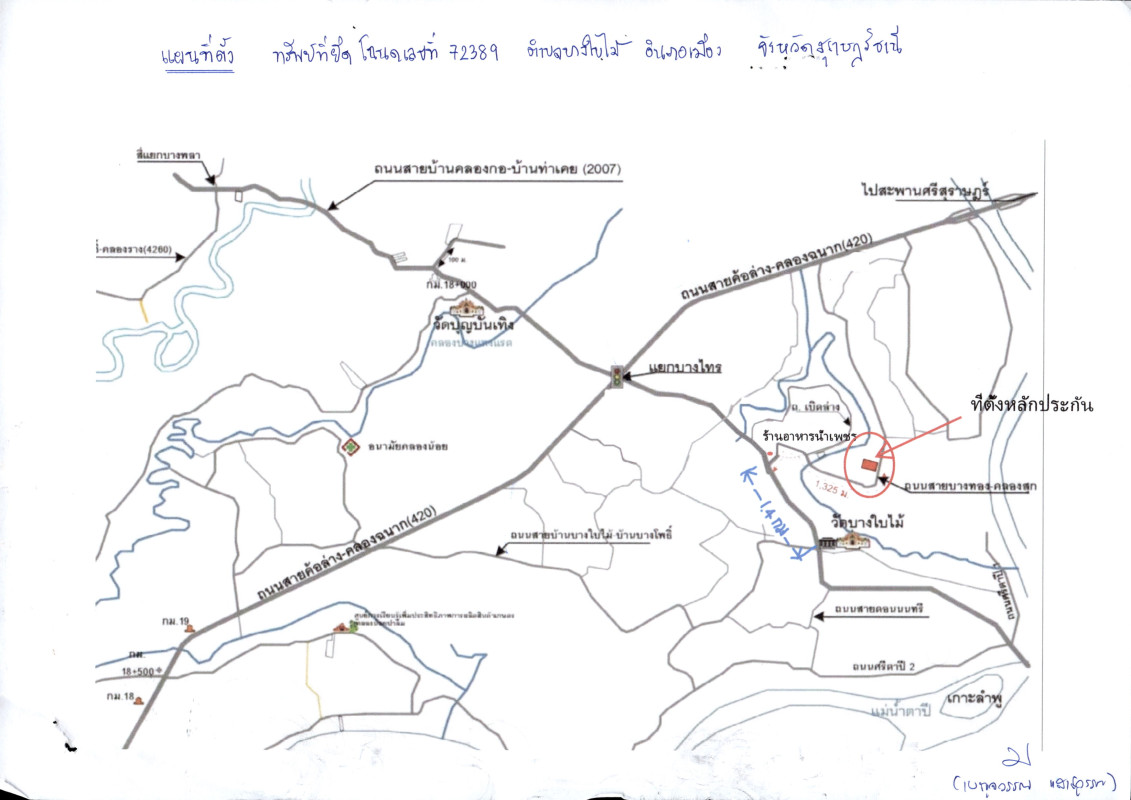 แผนที่ตั้ง ทรัพย์ที่ยึด โฉนดเลขที่ 72389 ตำบลบางใบไม้ อำเภอเมือง จังหวัดสุราษฎร์ธานี
สี่แยกบางพลา
ถนนสายบ้านคลองกอ-บ้านท่าเคย (2007)
ไปสะพานศรีสุราษฎร์
-คลองราง(4260)
ถนนสายค้อล่าง-คลองฉนาก(420)
100 ม
กม.18+000
วัดบุญบันเทิง
แยกบางไทร
ที่ตั้งหลักประกัน
ถ. เบิดล่าง
ร้านอาหารน้ำเพชร
อนามัยคลองน้อย
ถนนสายบางทอง-คลองสุก
1,325 ม
1.4 กม
วัดบางใบไม้
ถนนสายค้อล่าง-คลองฉนาก(420)
ถนนสายบ้านบางใบไม้-บ้านบางโพธิ์
ถนนสายดอนนนทรี
กม.19
กม.
18+500
กม.18
ถนนศรีตาปี 2
เกาะลำพู
แม่น้ำตาปี
ม